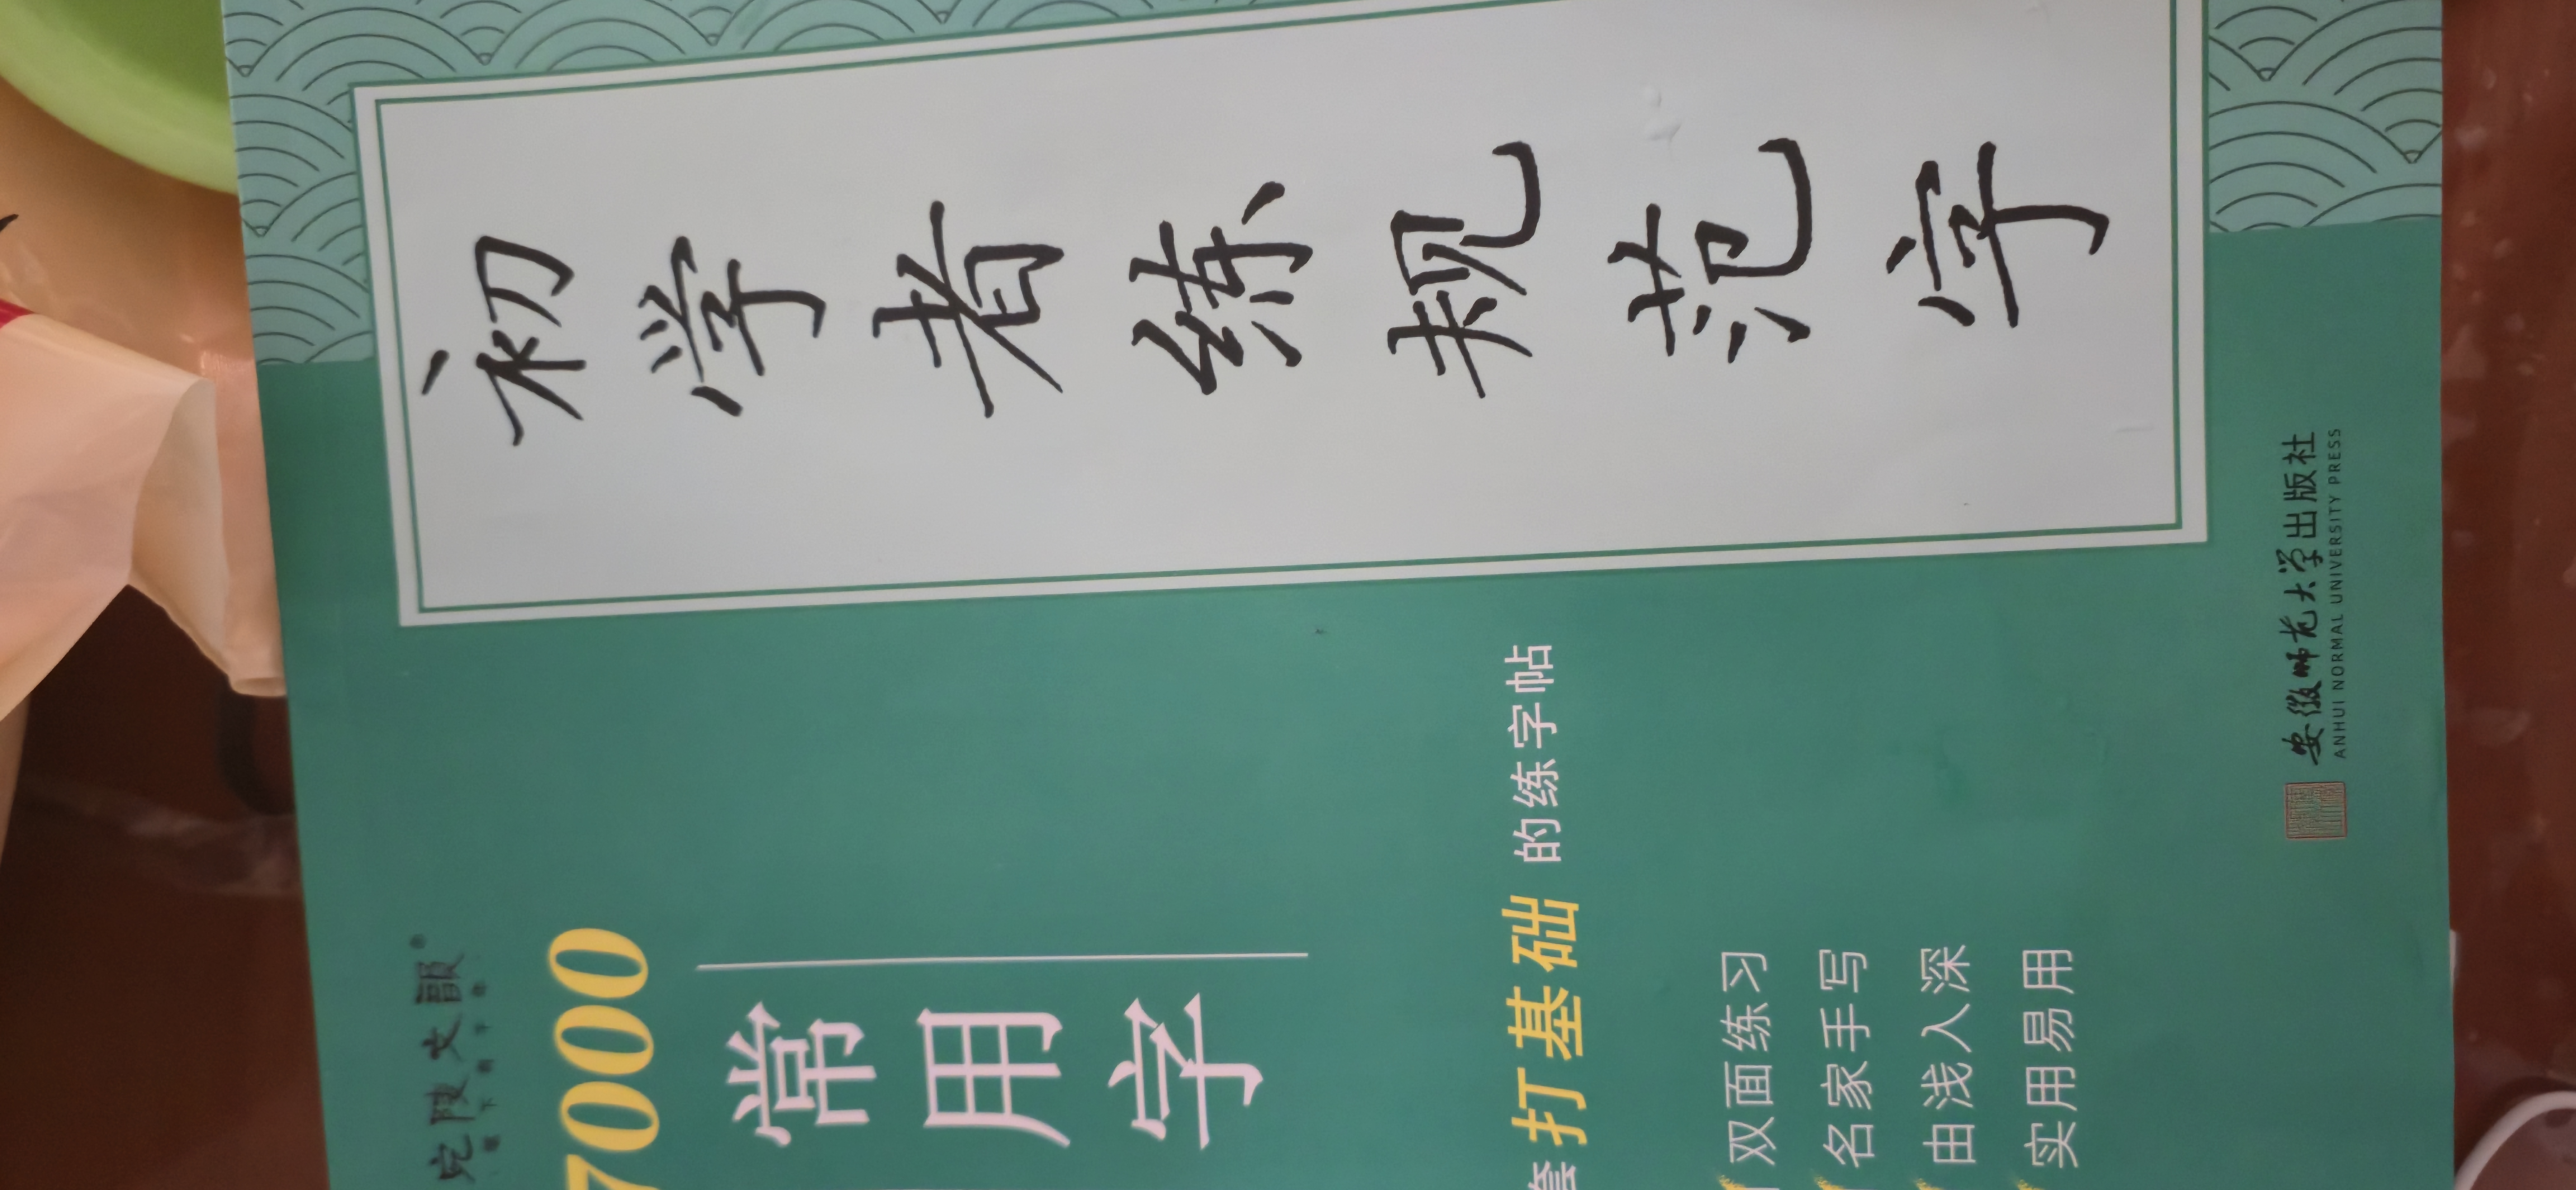 初学者练规范字
宛陵文韻®
7000
常用字
套打基础的练字帖
双面练习
名家手写
由浅入深
实用易用
安徽师范大学出版社
ANHUI NORMAL UNIVERSITY PRESS